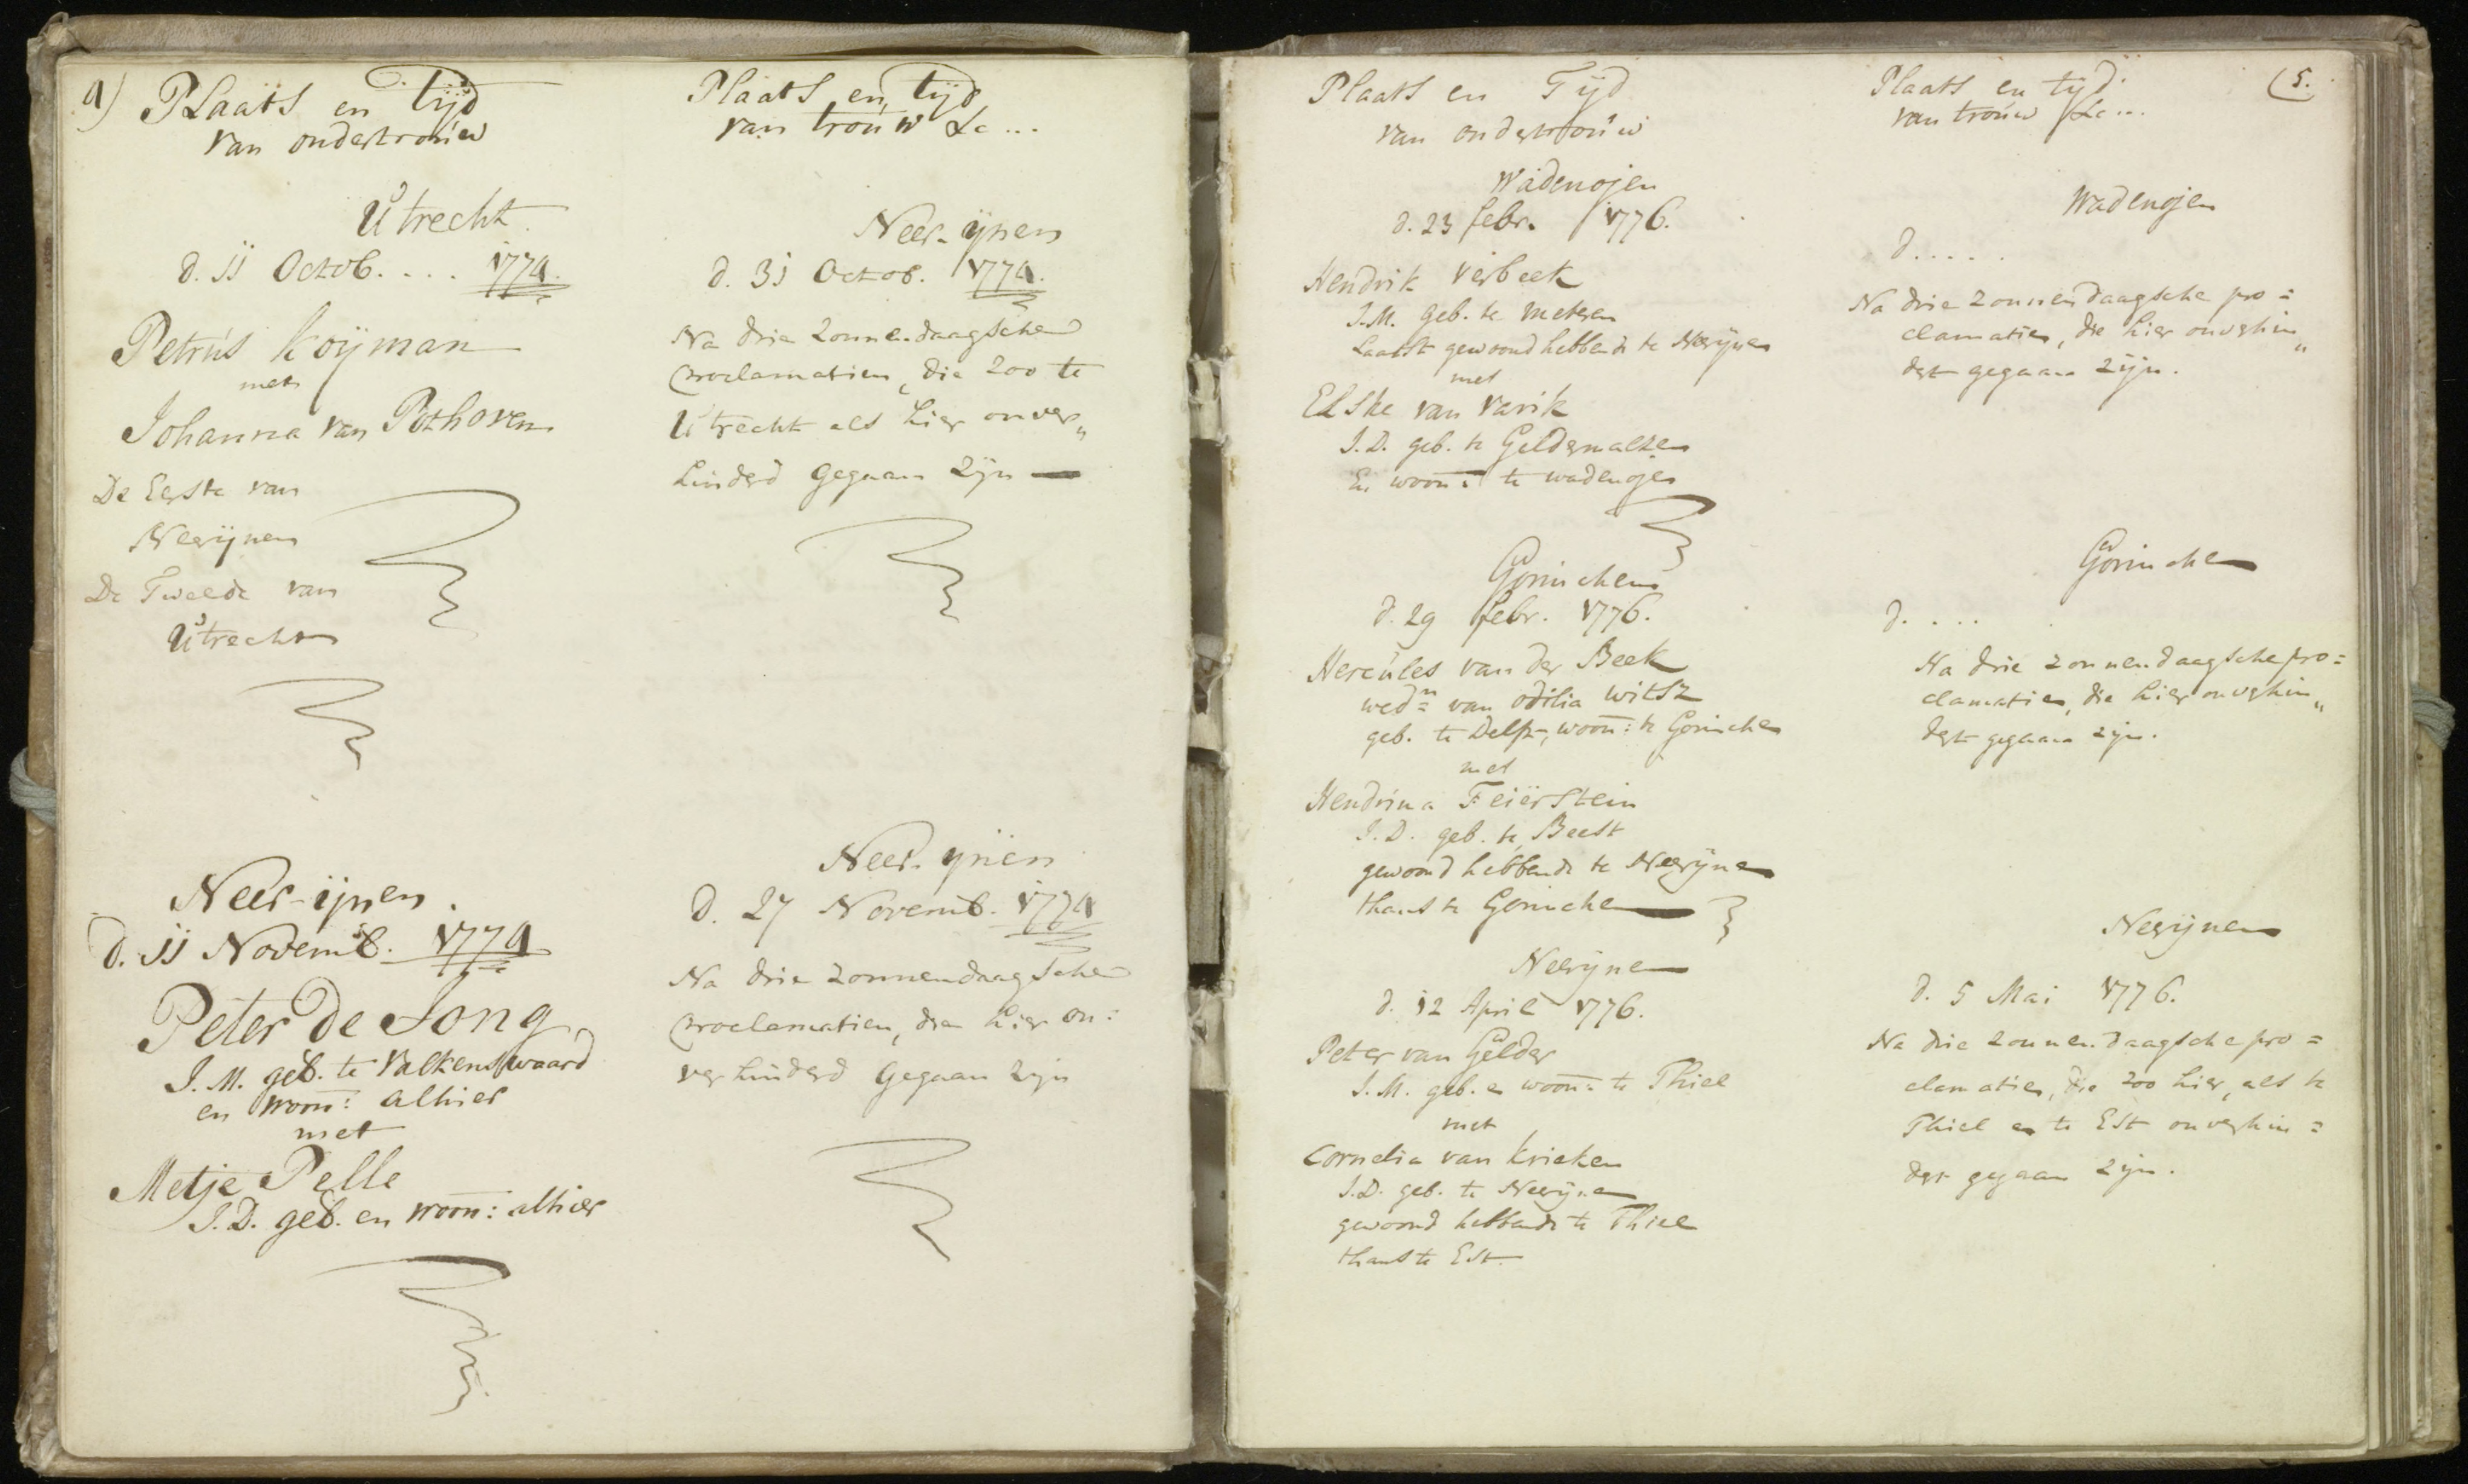 4)
Plaats en tijd
van ondertrouw
Utrecht.
d. 11 Octob. . . . 1774.
Petrus Koijman
met
Johanna van Pothoven
De Eerste van
Neerijnen
De Tweede van
Utrecht
Neer-ijnen.
d. 11 Novemb. 1774
Peter De Jong
J. M. geb. te Valkenswaard
en woon: alhier
met
Metje Pelle
J. D. geb. en woon: alhier
Plaats en tijd
van trouw &c ...
Neer-ijnen
d. 31 Octob. 1774.
Na drie Zonnendaagsche
proclamatien, die zoo te
Utrecht als hier onver„
hinderd gegaan zijn —
Neer-ijnen
d. 27 Novemb. 1774
Na drie zonnendaagsche
proclamatien, die hier on:
verhinderd gegaan zijn
Plaats en Tijd
van ondertrouw
Wadenojen
d. 23 febr. 1776.
Hendrik Verbeek
J. M. geb. te Meteren
Laatst gewoond hebbende te Neerijnen
met
Elske van Varik
J. D. geb. te Geldermalsen
En woon: te wadenojen
Gorinchem
d. 29 febr. 1776.
Hercules van der Beek
wedn= van Odilia Witsz
geb. te Delft, woon: te Gorinchem
met
Hendrina Feierstein
J. D. geb. te Beest
gewoond hebbende te Neerijnen
thans te Gorinchem
Neerijnen
d. 12 April 1776.
Peter van Gelder
J. M. geb. en woon: te Thiel
met
Cornelia van Krieken
J. D. geb. te Neerijnen
gewoond hebbende te Thiel
thans te Est
Plaats en tijd
van trouw &c...
(5.
Wadenojen
d. . . . .
Na drie zonnendaagsche pro=
clamatien, die hier onverhin„
dert gegaan zijn.
Gorinchem
d. . . .
Na drie zonnendaagsche pro=
clamatien, die hier onverhin„
dert gegaan zijn.
Neerijnen
d. 5 Mai 1776.
Na drie zonnendaagsche pro=
clamatien, die zoo hier, als te
Thiel en te Est onverhin=
dert gegaan zijn.